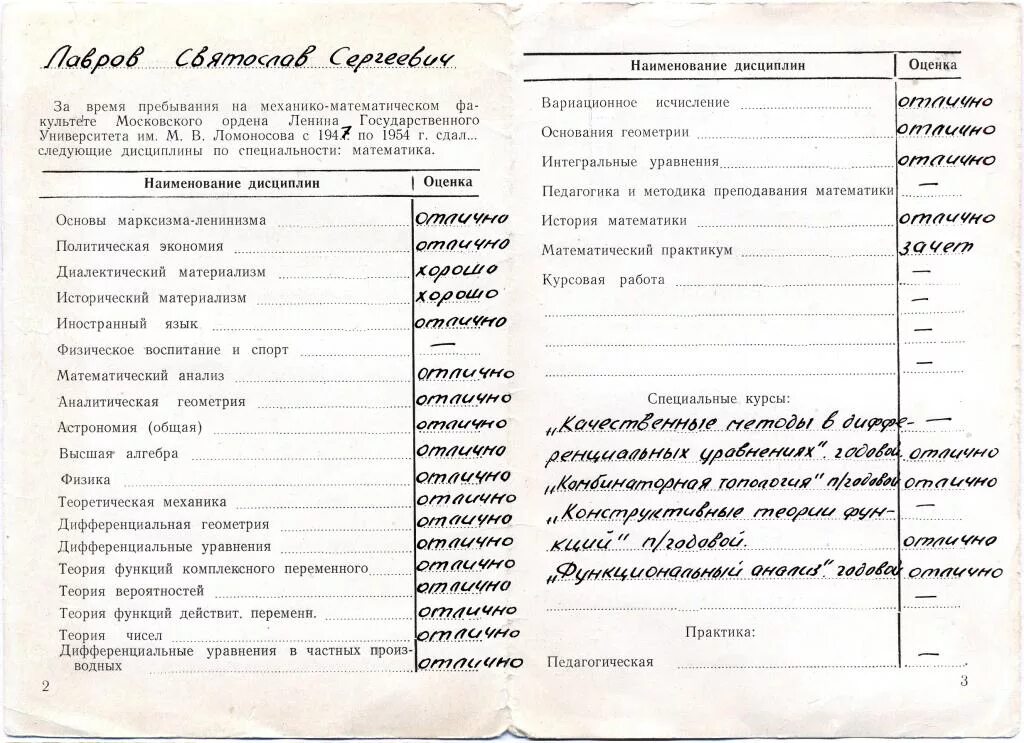 Лавров Святослав Сергеевич
За время пребывания на механико-математическом фа-
культете Московского ордена Ленина Государственного
Университета им. М. В. Ломоносова с 1947 по 1954 г. сдал...
следующие дисциплины по специальности: математика.
Наименование дисциплин Оценка
Основы марксизма-ленинизма отлично
Политическая экономия отлично
Диалектический материализм хорошо
Исторический материализм хорошо
Иностранный язык отлично
Физическое воспитание и спорт —
Математический анализ отлично
Аналитическая геометрия отлично
Астрономия (общая) отлично
Высшая алгебра отлично
Физика отлично
Теоретическая механика отлично
Дифференциальная геометрия отлично
Дифференциальные уравнения отлично
Теория функций комплексного переменного отлично
Теория вероятностей отлично
Теория функций действит. перемени. отлично
Теория чисел отлично
Дифференциальные уравнения в частных произ-
водных отлично
2
Наименование дисциплин Оценка
Вариационное исчисление отлично
Основания геометрии отлично
Интегральные уравнения отлично
Педагогика и методика преподавания математики —
История математики отлично
Математический практикум зачет
Курсовая работа —
—
—
—
Специальные курсы:
„Качественные методы в диффе- —
ренциальных уравнениях". годовой. отлично
„Комбинаторная топология" п/годовой отлично
„Конструктивные теории функ- —
кций" п/годовой. отлично
„Функциональный анализ". годовой отлично
—
Практика:
Педагогическая —
3